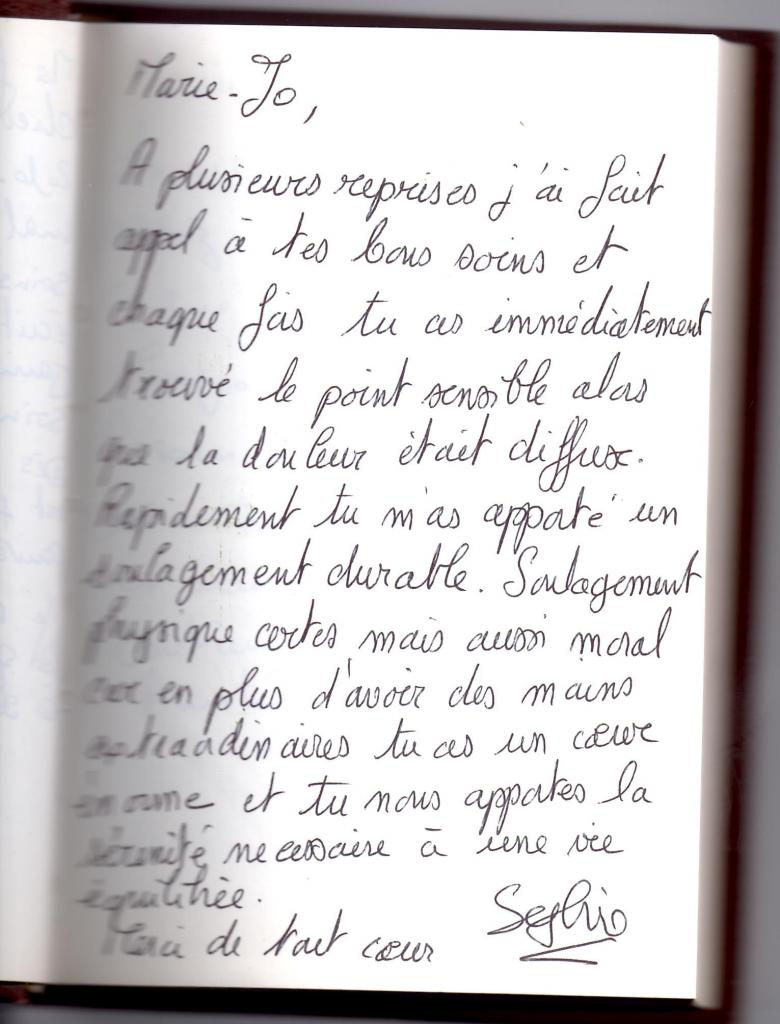 Marie-Jo,
A plusieurs reprises j'ai fait
appel à tes bons soins et
chaque fois tu as immédiatement
trouvé le point sensible alors
que la douleur était diffuse.
Rapidement tu m'as apporté un
soulagement durable. Soulagement
physique certes mais aussi moral
car en plus d'avoir des mains
extraordinaires tu as un cœur
énorme et tu nous apportes la
sérénité necessaire à une vie
équilibrée.
Merci de tout cœur